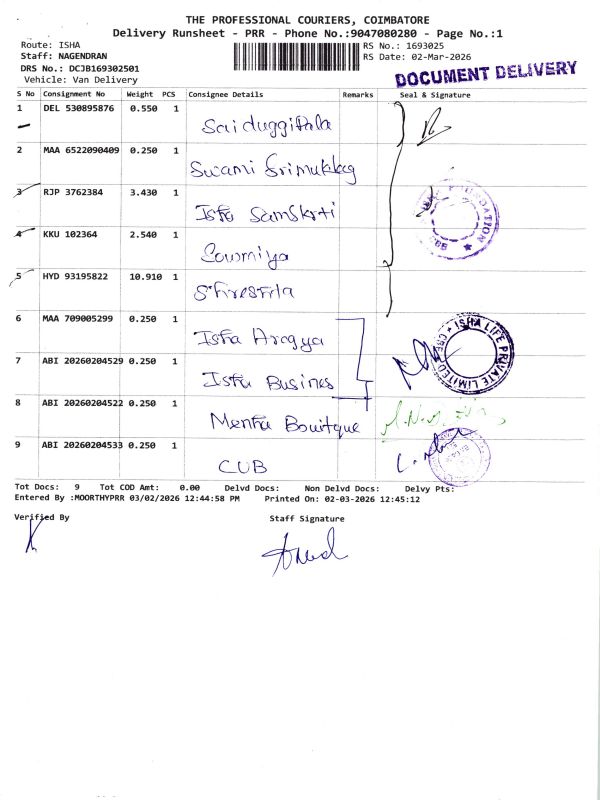 THE PROFESSIONAL COURIERS, COIMBATORE
Delivery Runsheet - PRR - Phone No.:9047080280 - Page No.:1
Route: ISHA
Staff: NAGENDRAN
DRS No.: DCJB169302501
Vehicle: Van Delivery
RS No.: 1693025
RS Date: 02-Mar-2026
DOCUMENT DELIVERY
S No Consignment No Weight PCS Consignee Details Remarks Seal & Signature
1 DEL 530895876 0.550 1 Saiduggirala
2 MAA 6522090409 0.250 1 Swami Srimukkag
3 RJP 3762384 3.430 1 Isha Samskrti
4 KKU 102364 2.540 1 Sowmiya
5 HYD 93195822 10.910 1
6 MAA 709005299 0.250 1 Isha Arogya
7 ABI 20260204529 0.250 1 Isha Busines
8 ABI 20260204522 0.250 1 Bouitque
9 ABI 20260204533 0.250 1 CUB
ISHA LIFE PRIVATE LIMITED
Tot Docs: 9 Tot COD Amt: 0.00 Delvd Docs: Non Delvd Docs: Delvy Pts:
Entered By :MOORTHYPRR 03/02/2026 12:44:58 PM Printed On: 02-03-2026 12:45:12
Verified By
Staff Signature